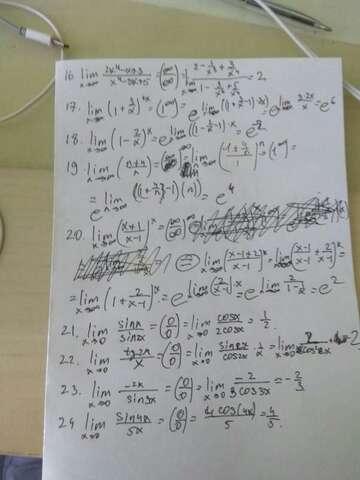 16 lim x→∞ (2x⁴-x+3)/(x⁴-8x+5) = (∞/∞) = lim x→∞ (2 - 1/x³ + 3/x⁴)/(1 - 8/x³ + 5/x⁴) = 2
17. lim x→∞ (1+3/x)^2x = (1^∞) = e^ lim x→∞ ((1+3/x-1)·2x) = e^ lim x→∞ 3·2x/x = e⁶
18. lim x→∞ (1-2/x)^x = e^ lim x→∞ ((1-2/x-1)·x) = e^-2
19. lim n→∞ (n+4/n)^n = lim n→∞ (1+4/n / 1)^n = (1^∞) =
= e^ lim n→∞ ((1+4/n)-1)(n)) = e⁴
20. lim x→∞ (x+1/x-1)^x = (∞/∞)
= lim x→∞ (x-1+2/x-1)^x = lim x→∞ (x-1/x-1 + 2/x-1)^x =
= lim x→∞ (1+2/x-1)^x = e^ lim x→∞ (2/x-1)·x = e^ lim x→∞ = e²
21. lim x→0 sinx/sin2x = (0/0) = lim x→0 cosx/2cos2x = 1/2.
22. lim x→0 tg2x/x = (0/0) = lim x→0 sin2x/cos2x · 1/x = lim x→0 = 2
23. lim x→0 -2x/sin3x = (0/0) = lim x→0 -2/3cos3x = -2/3
24 lim x→0 sin4x/5x = (0/0) = 4cos(4x)/5 = 4/5.